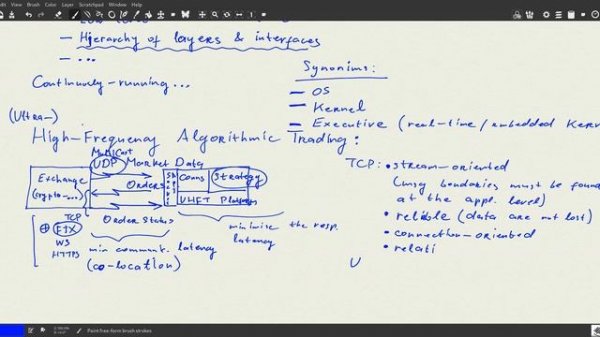 Edit View Brush Color Layer Scratchpad Window Help
— Hierarchy of layers & interfaces
— ...
Continuously-running...
Synonims:
— OS
— Kernel
— Executive (real-time/embedded Kern
(Ultra-)
High-Frequency Algorithmic Trading:
Multicast
UDP Market Data
Exchange
(crypto-...)
Orders
Conns
Strategy
UHFT Platform
TCP
Order Status
⊕ FIX
WS
HTTPS
min commun. latency
(co-location)
minimise the resp.
latency
TCP: • stream-oriented
(msg bondaries must be found
at the appl. level)
• relible (data are not lost)
• connection-oriented
• relati
U
Paint free-form brush strokes